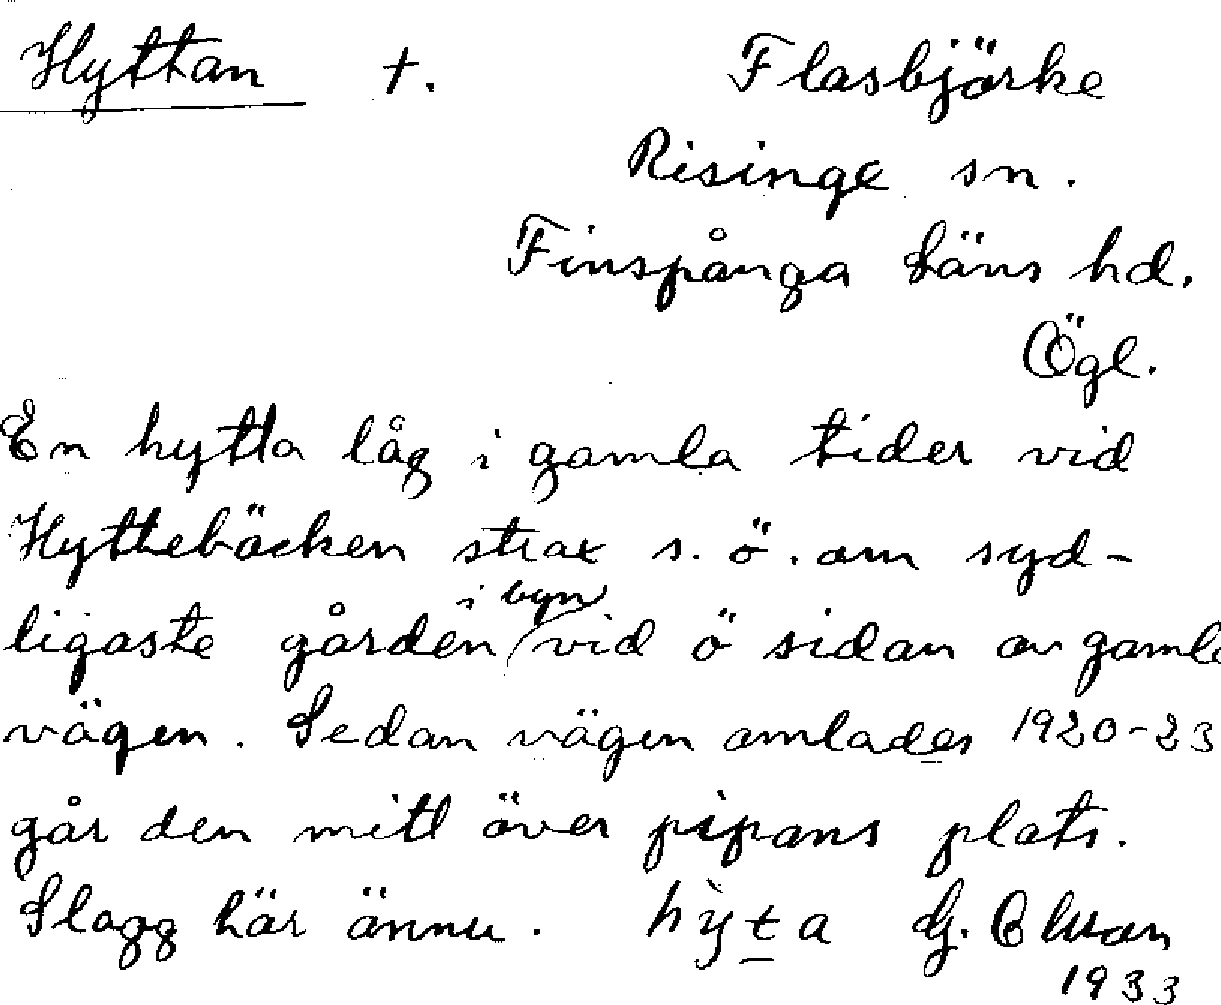 Hyttan †. Flasbjörke
Risinge sn.
Finspånga läns hd.
Ögl.
En hytta låg i gamla tider vid
Hyttebäcken strax s. ö. om syd-
ligaste gården i byn vid ö sidan av gamla
vägen. Sedan vägen omlades 1920-23
går den mitt över pipans plats.
Slagg här ännu. hy̆ta G.
1933